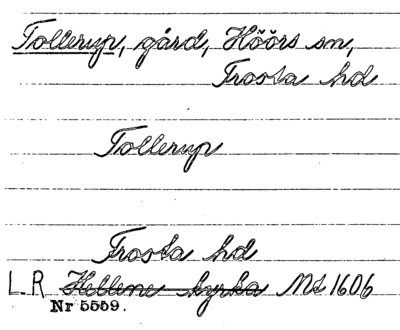 Tollerup, gård, Höörs sn,
Frosta hd
Tollerup
Frosta hd
L.R Hellene kyrka Ms 1606
Nr 5559.